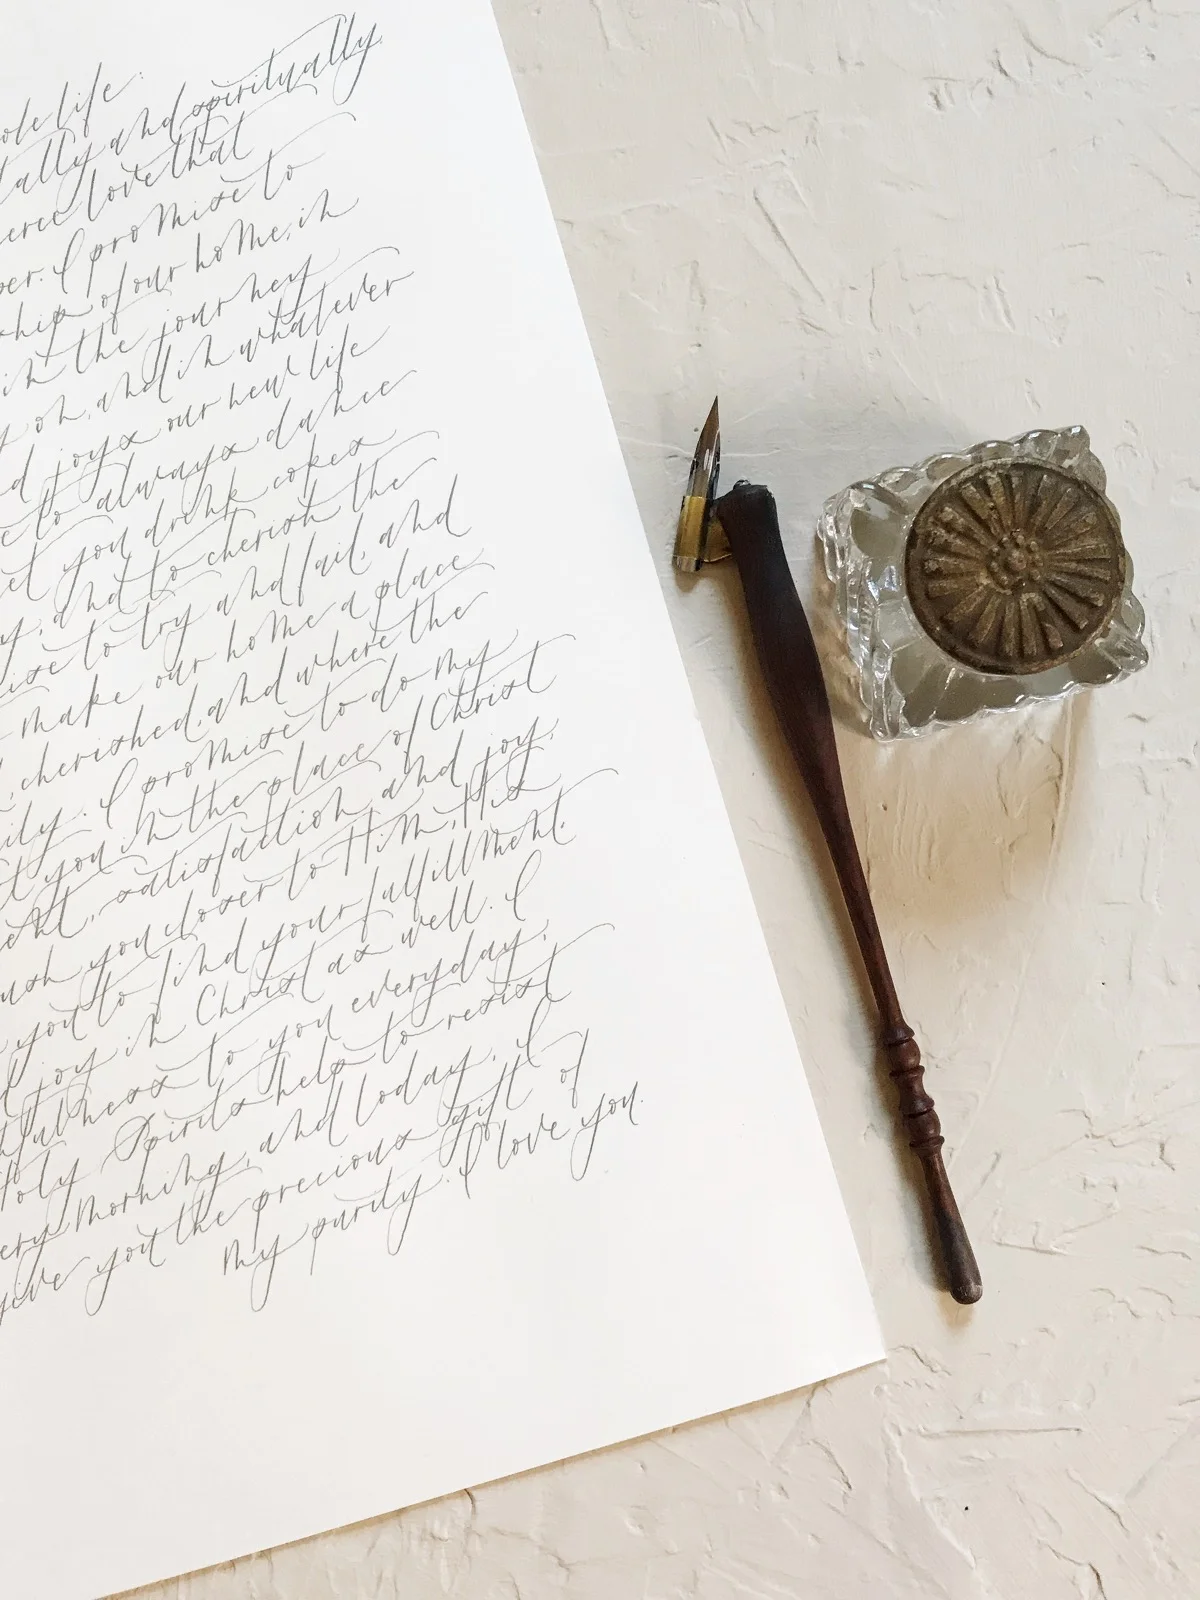 life
and spiritually.
love that
I promise to
of our home, in
in the journey
on, and in whatever
joys our new life
to always dance
you drink cokes
and to cherish the
to try and fail, and
make our home a place
cherished, and where the
I promise to do my
you in the place of Christ
satisfaction, and joy.
you closer to Him, His
you to find your fulfillment.
joy in Christ as well. I
to you everyday,
Spirits help to resist
morning, and today. I
give you the precious gift of
my purity. I love you.